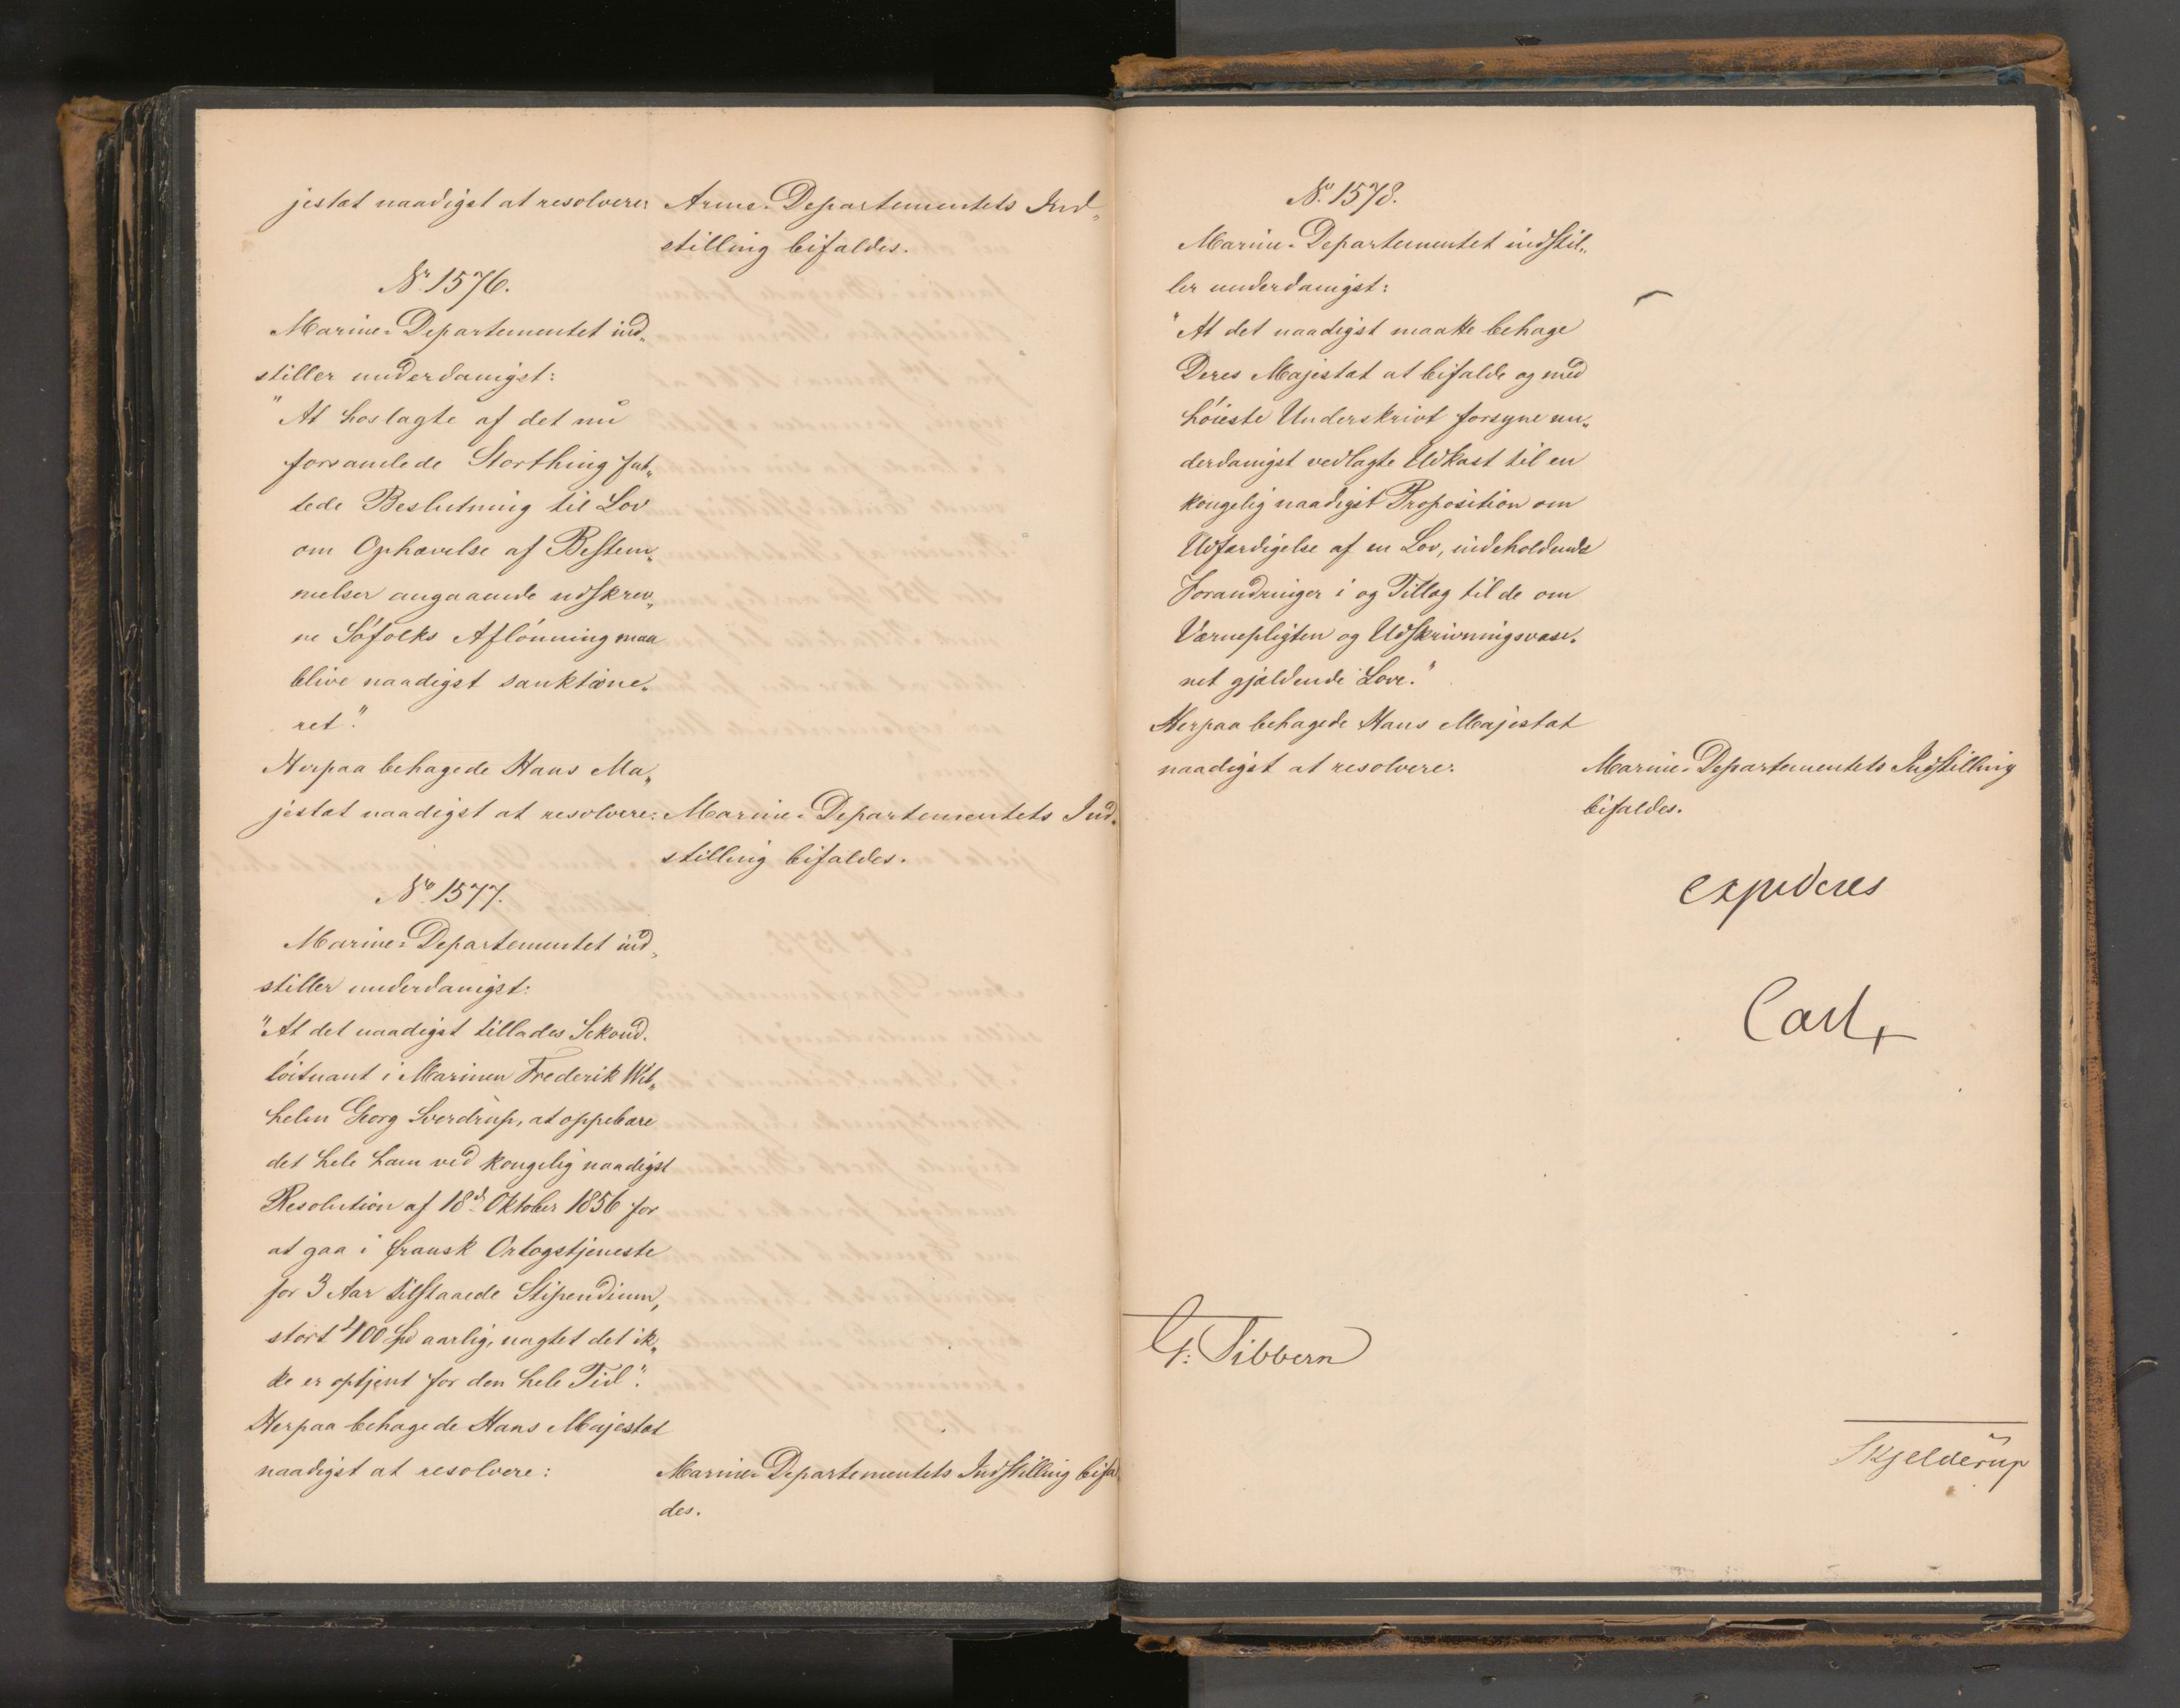 jestæt naadigst at resolvere: Arme-Departementets Ind„
stilling bifaldes.
No 1576.
Marine-Departementet ind„
stiller underdanigst:
"At hoslagte af det nu
forsamlede Storthing fat„
tede Beslutning til Lov
om Ophævelse af Bestem„
melser angaaende udskrev„
ne Söfolks Aflönning maa
blive naadigst sanktione„
ret".
Herpaa behagede Hans Ma„
jestæt naadigst at resolvere: Marine-Departementets Ind„
stilling bifaldes.
No 1577.
Marine-Departementet ind„
stiller underdanigst:
"At det naadigst tillades Sekond„
löitnant i Marinen Frederik Wil„
helm Georg Sverdrup, at oppebære
det hele ham ved kongelig naadigst
Resolution af 18d. Oktober 1856 for
at gaa i fransk Orlogstjeneste
for 3 Aar tilstaaede Stipendium,
stort 400 Spd aarlig, uagtet det ik„
ke er optjent for den hele Tid".
Herpaa behagede Hans Majestæt
naadigst at resolvere: Marine-Departementets Indstilling bifal
des.
No. 1578.
Marine-Departementet indstil„
ler underdanigst:
"At det naadigst maatte behage
Deres Majestæt at bifalde og med
höieste Underskrivt forsyne un„
derdanigst vedlagte Udkast til en
kongelig naadigst Proposition om
Udfærdigelse af en Lov, indeholdende
Forandringer i og Tillæg til de om
Værnepligten og Udskrivningsvæse„
net gjældende Love."
Herpaa behagede Hans Majestæt
naadigst at resolvere: Marine-Departementets Indstilling
bifaldes.
expederes
Carl
G: Sibbern
Skjelderup